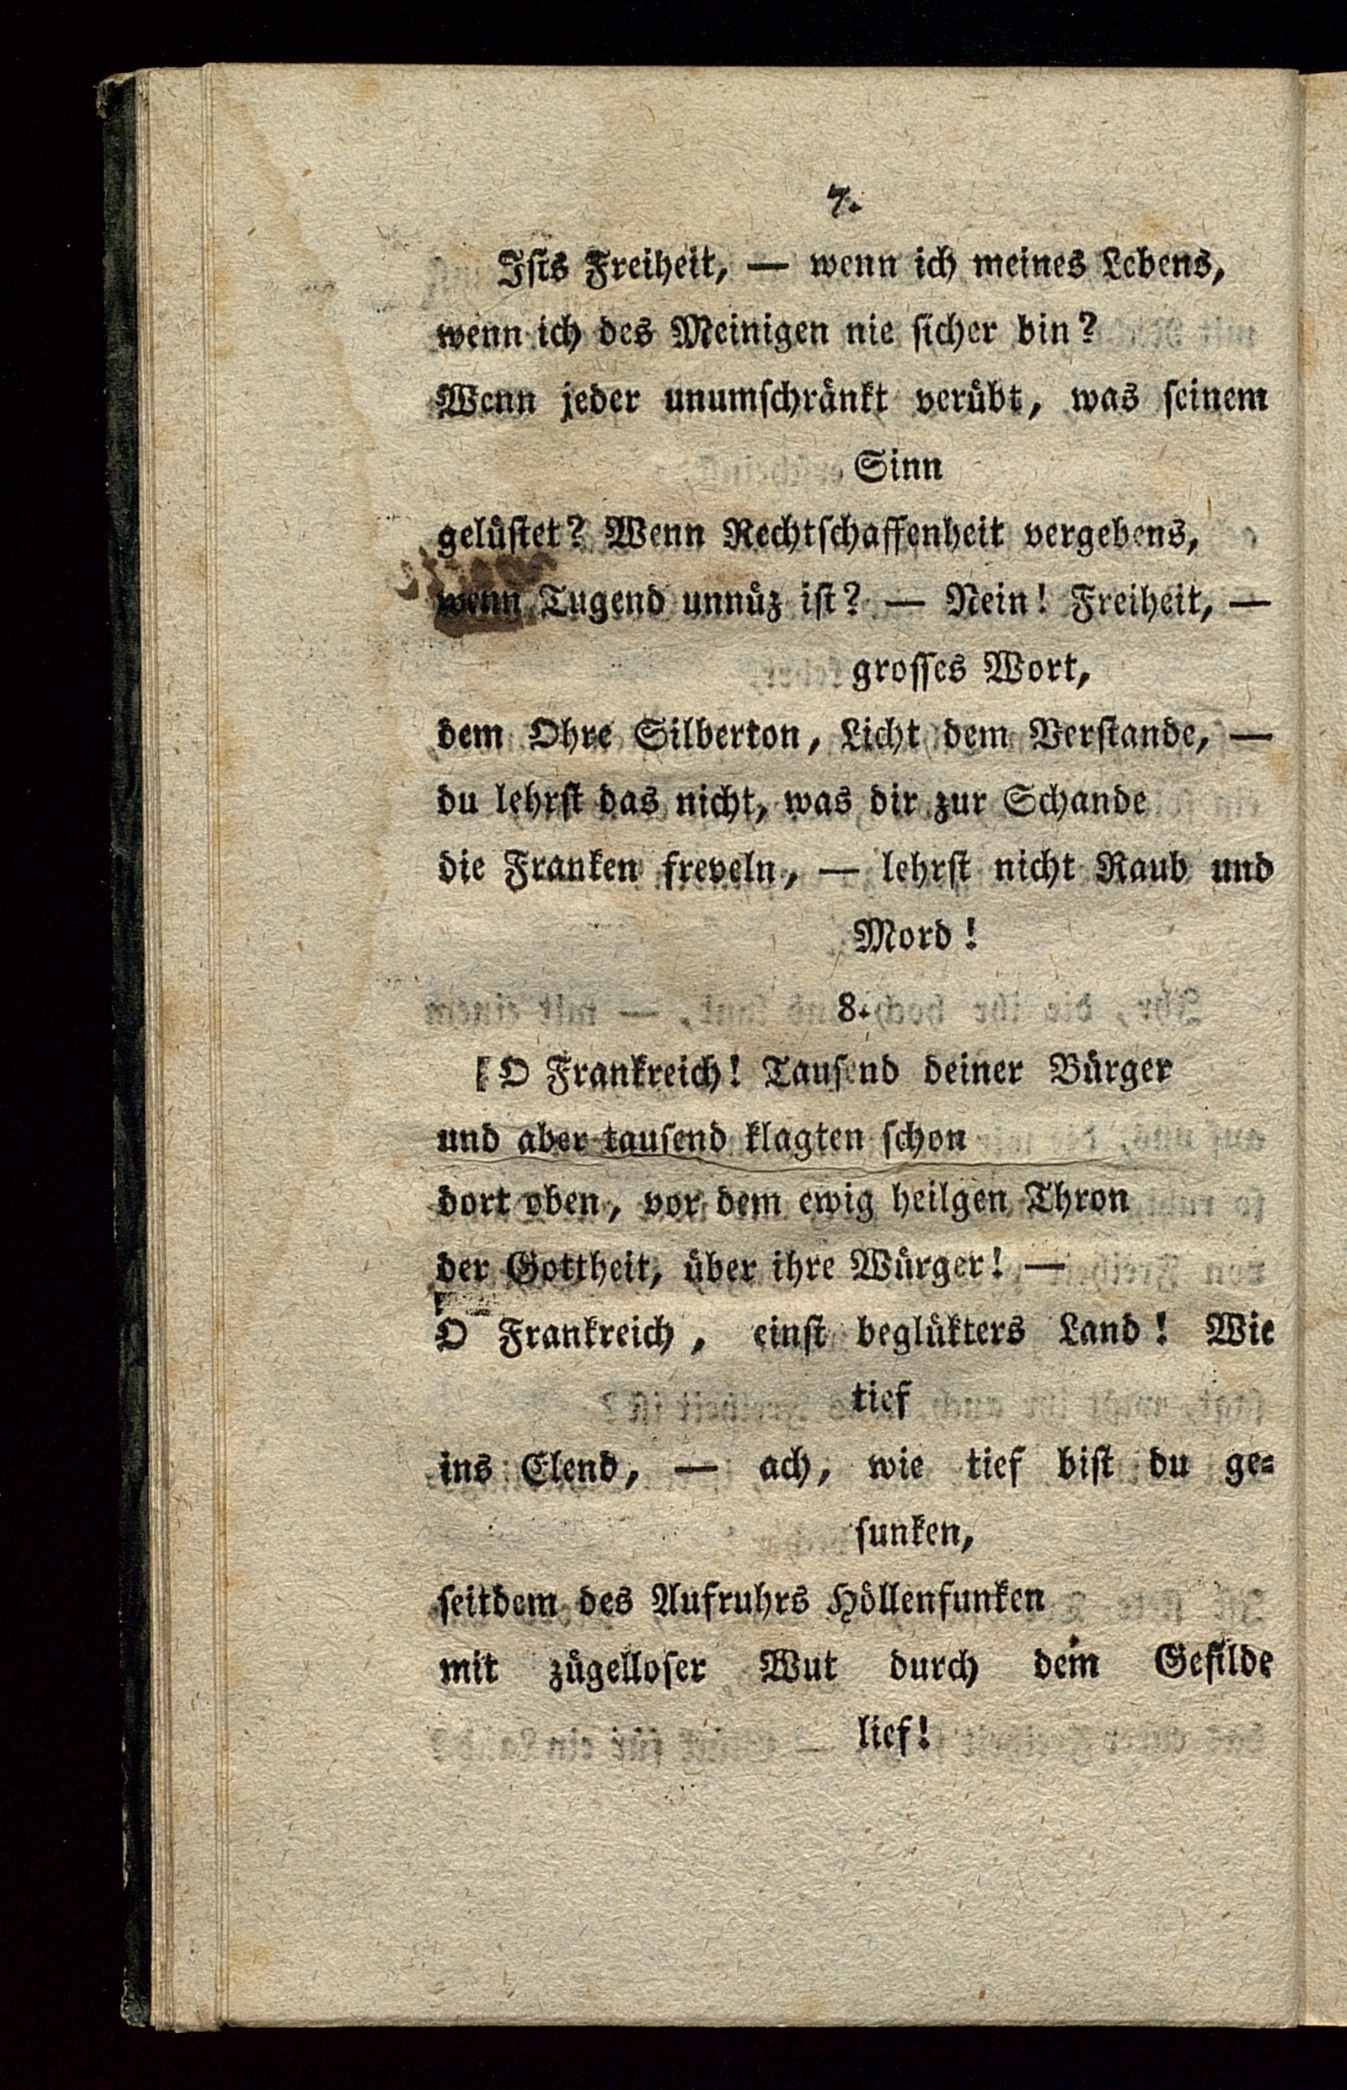 7.
Ists Freiheit, — wenn ich meines Lebens,
wenn ich des Meinigen nie sicher bin?
Wenn jeder unumschränkt verübt, was seinem
Sinn
gelüstet? Wenn Rechtschaffenheit vergebens,
wenn Tugend unnüz ist? — Nein! Freiheit, —
grosses Wort,
dem Ohre Silberton, Licht dem Verstande, —
du lehrst das nicht, was dir zur Schande
die Franken freveln, — lehrst nicht Raub und
Mord!
8.
O Frankreich! Tausend deiner Bürger
und aber tausend klagten schon
dort oben, vor dem ewig heilgen Thron
der Gottheit, über ihre Würger! —
O Frankreich, einst beglükters Land! Wie
tief
ins Elend, — ach, wie tief bist du ge-
sunken,
seitdem des Aufruhrs Höllenfunken
mit zügelloser Wut durch dein Gefilde
lief!